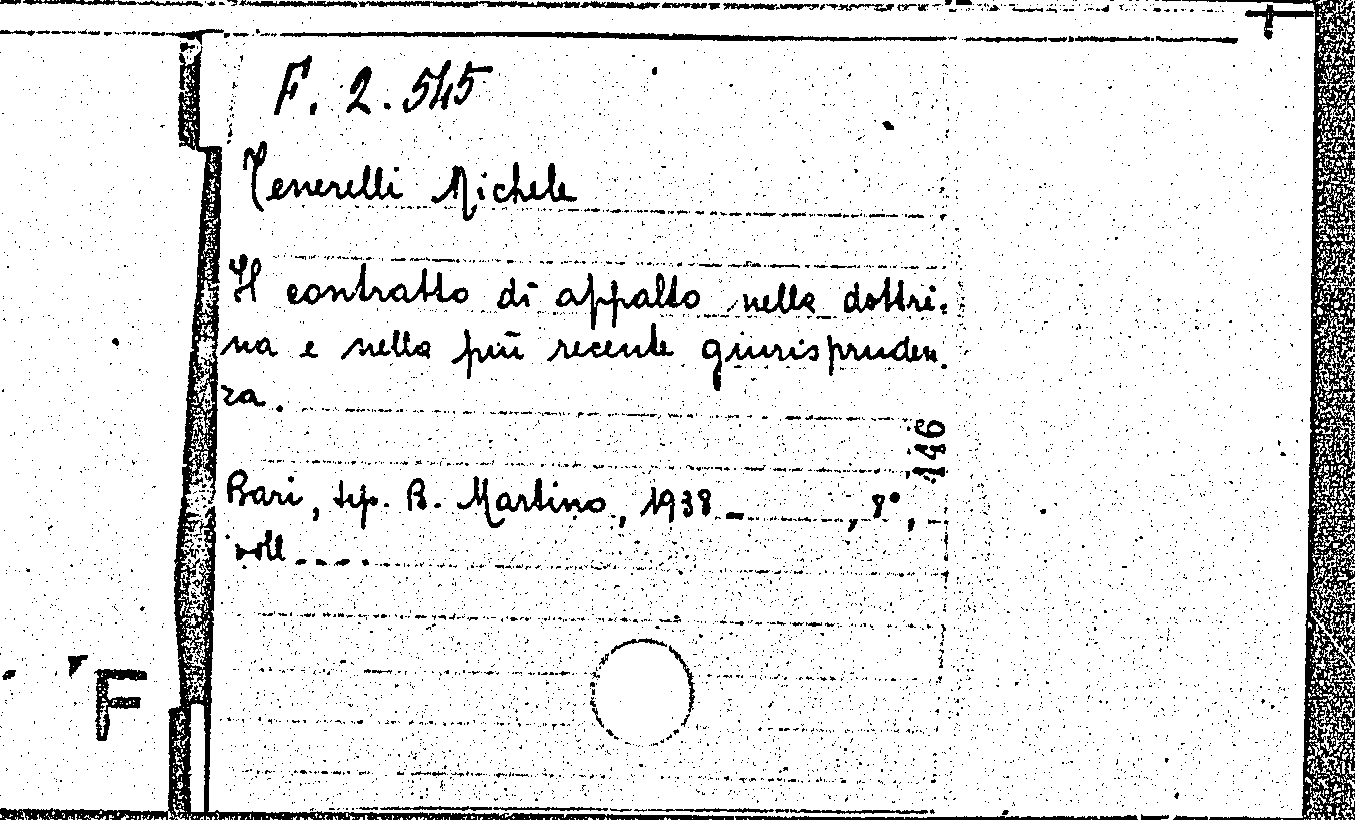 F. 2. 545
Tenerelli Michele
Il contratto di appalto nella dottri-
na e nella più recente giurispruden-
za.
146
Bari, tip. B. Martino, 1938 - , 8°,
voll....
F